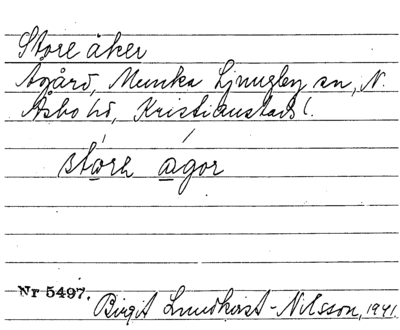 Store åker
Agård, Munka Ljungby sn, N.
Åsbo hd, Kristianstads l.
store agor
Nr 5497.
Birgit Lundkvist-Nilsson, 1941.